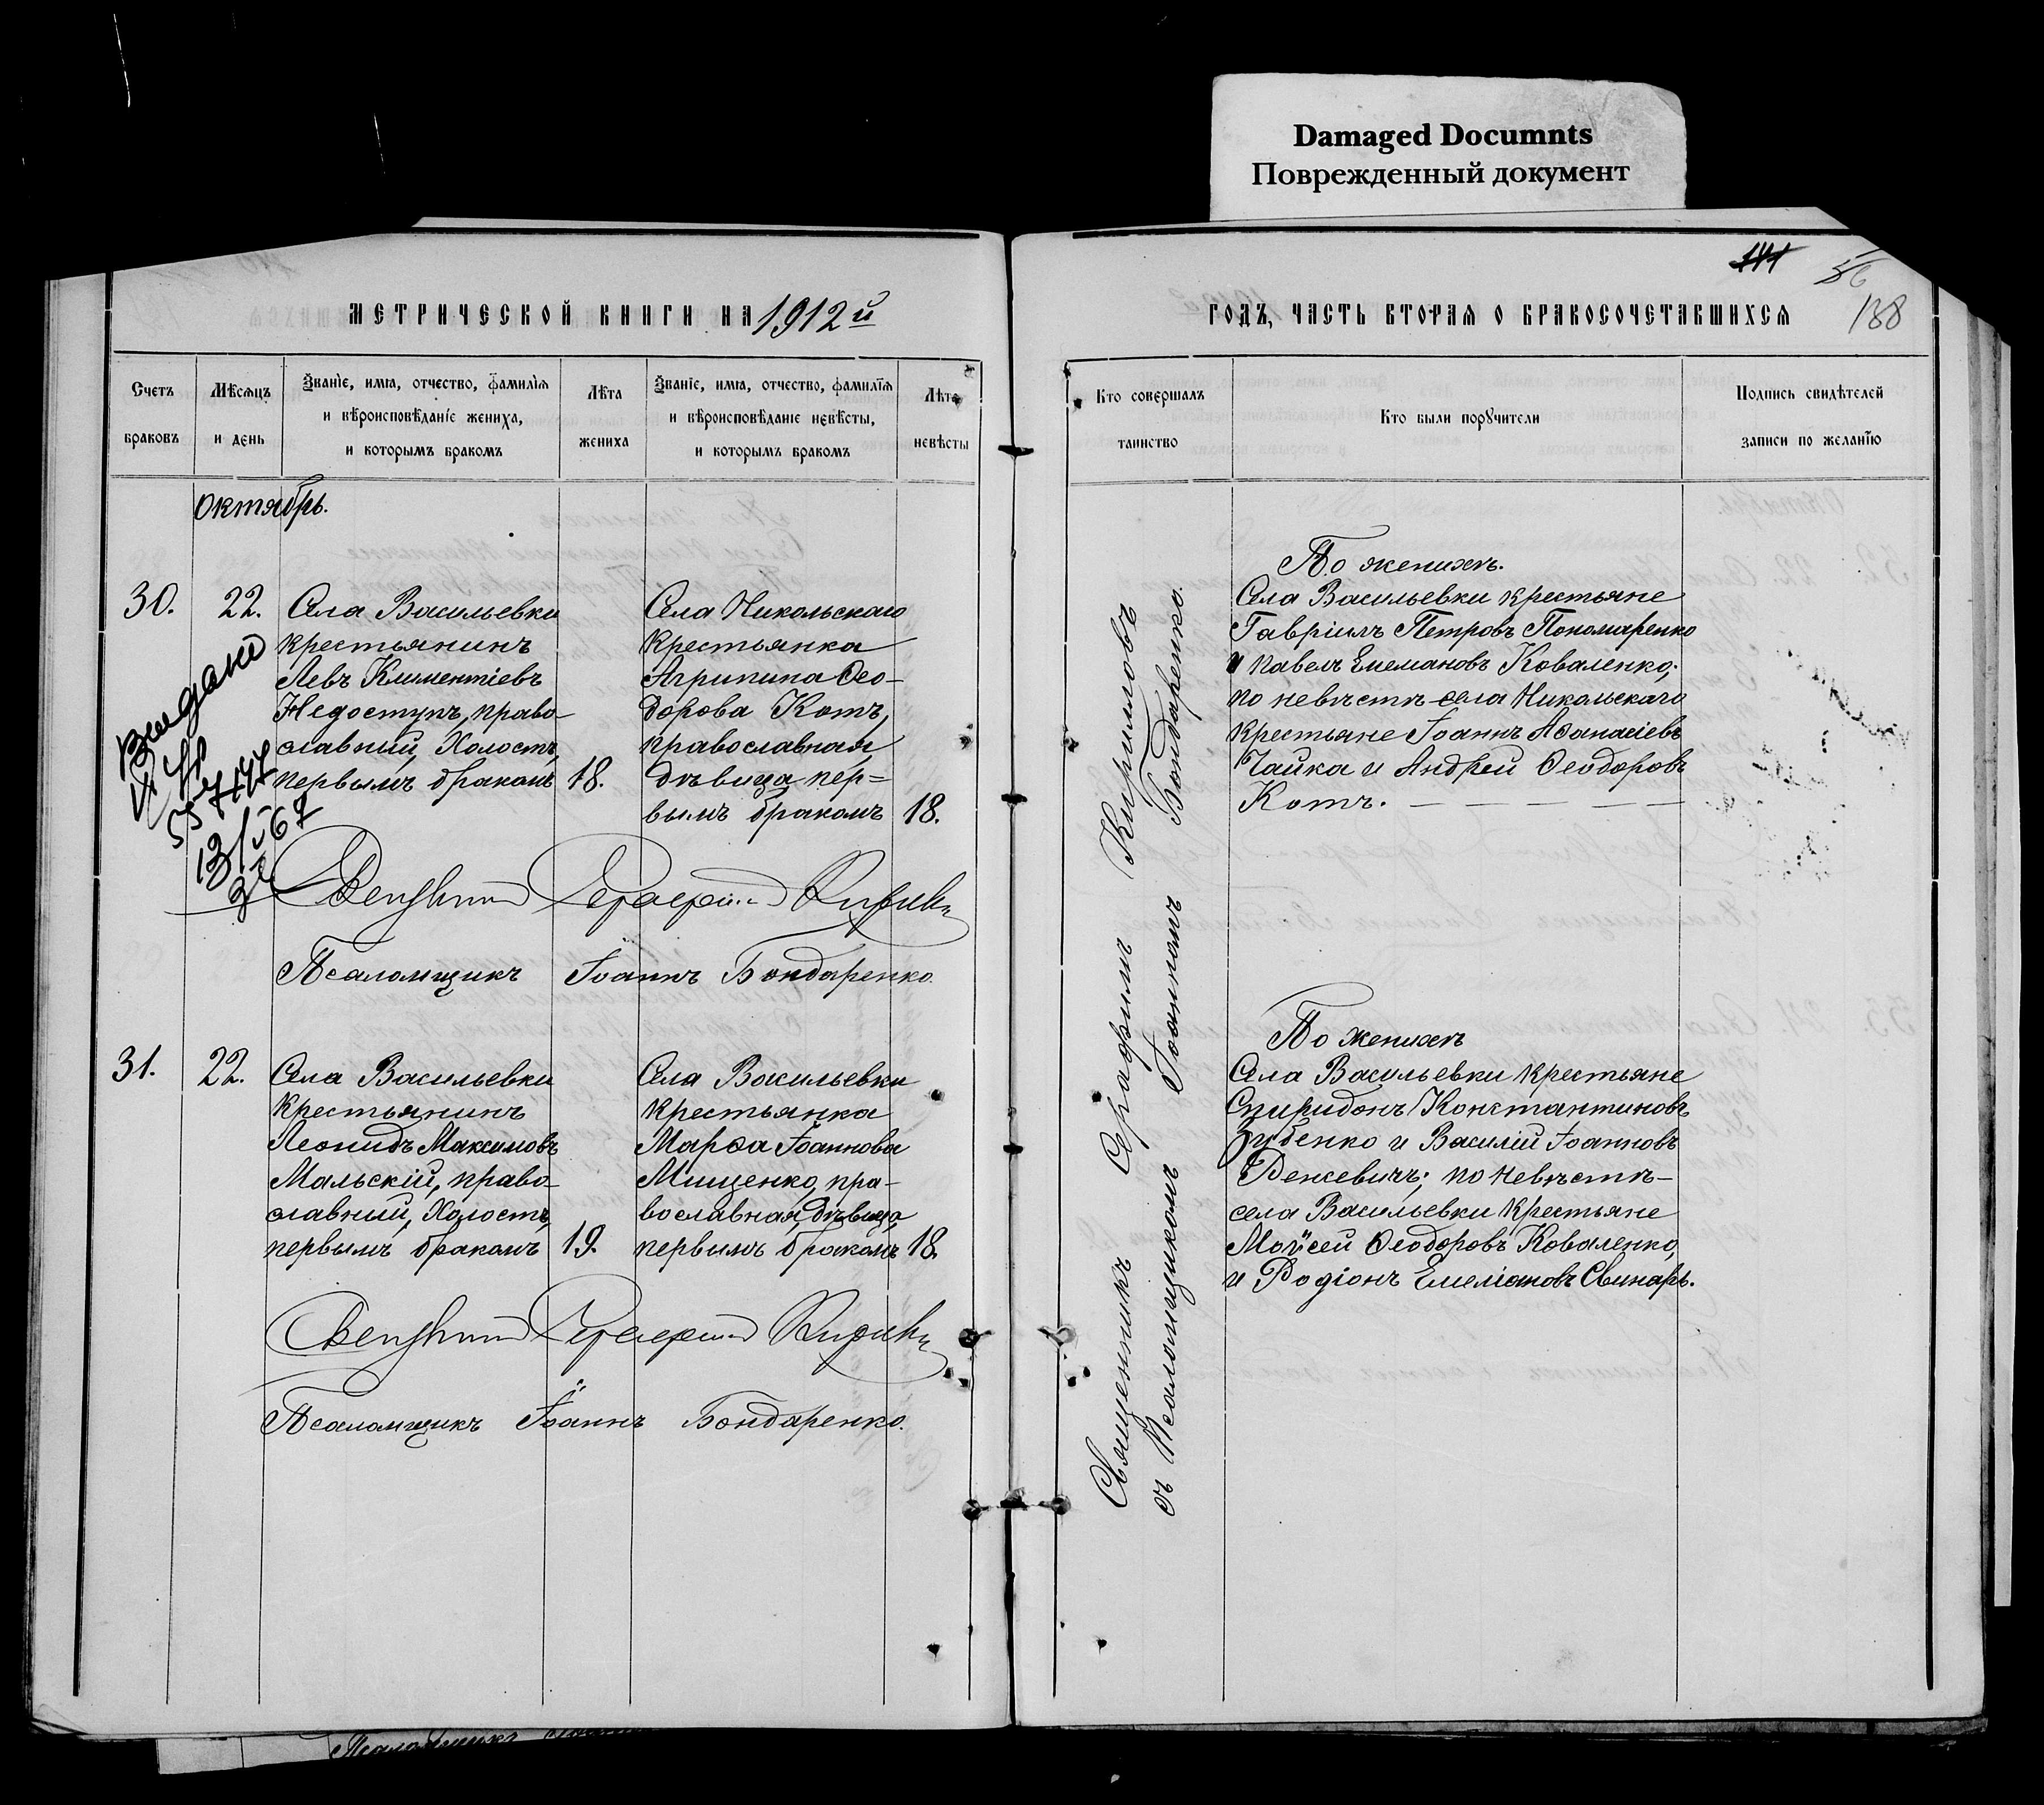 Damaged Documnts
Поврежденный документ
141
56
138
МЕТРИЧЕСКОЙ КНИГИ НА 1912й
ГОДЪ, ЧАСТЬ ВТОРАЯ О БРАКОСОЧЕТАВШИХСЯ
Счетъ браковъ
Мѣсяцъ и день
Званіе, имя, отчество, фамилія
и вѣроисповѣданіе жениха,
и которымъ бракомъ
Лѣта жениха
Званіе, имя, отчество, фамилія
и вѣроисповѣданіе невѣсты,
и которымъ бракомъ
Лѣта невѣсты
Кто совершалъ
таинство
Кто были поручители
Подпись свидѣтелей
записи по желанію
Октябрь.
30.
22.
Села Васильевки
крестьянинъ
Левъ Климентіевъ
Недоступъ, право-
славный, холостъ,
первымъ бракомъ
18.
Села Никольскаго
крестьянка
Агрипина Ѳео-
дорова Котъ,
православная,
дѣвица пер=
вымъ бракомъ
18.
Видано
13/
67
Священникъ Серафимъ Кирилловъ
Псаломщикъ Іоаннъ Бондаренко.
31.
22.
Села Васильевки
крестьянинъ
Леонидъ Максимовъ
Мальскій, право-
славный, холостъ,
первымъ бракомъ
19.
Села Васильевки
крестьянка
Марѳа Іоаннова
Мищенко, пра-
вославная, дѣвица,
первымъ бракомъ
18.
Священникъ Серафимъ Кирилловъ
Псаломщикъ Іоаннъ Бондаренко.
Священникъ Серафимъ Кирилловъ
съ Псаломщикомъ Іоанномъ Бондаренко.
По женихѣ.
Села Васильевки крестьяне
Гавріилъ Петровъ Пономаренко
и Павелъ Емелановъ Коваленко;
по невѣстѣ села Никольскаго
крестьяне Іоаннъ Аѳанасіевъ
Чайка и Андрей Ѳеодоровъ
Котъ. — — — — —
По женихѣ
Села Васильевки крестьяне
Спиридонъ Константиновъ
Зубенко и Василій Іоанновъ
Венжевичъ; по невѣстѣ—
села Васильевки крестьяне
Моѵсей Ѳеодоровъ Коваленко,
и Родіонъ Емеліановъ Свинарь.